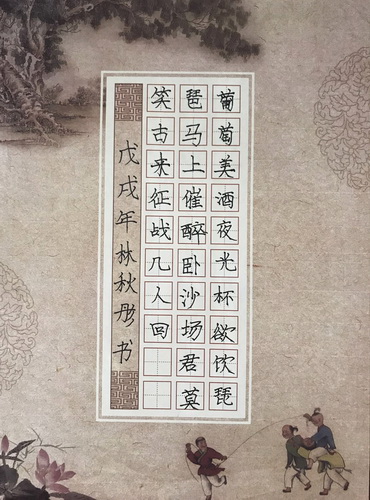 葡萄美酒夜光杯欲饮琵
琶马上催醉卧沙场君莫
笑古来征战几人回
戊戌年林秋彤书